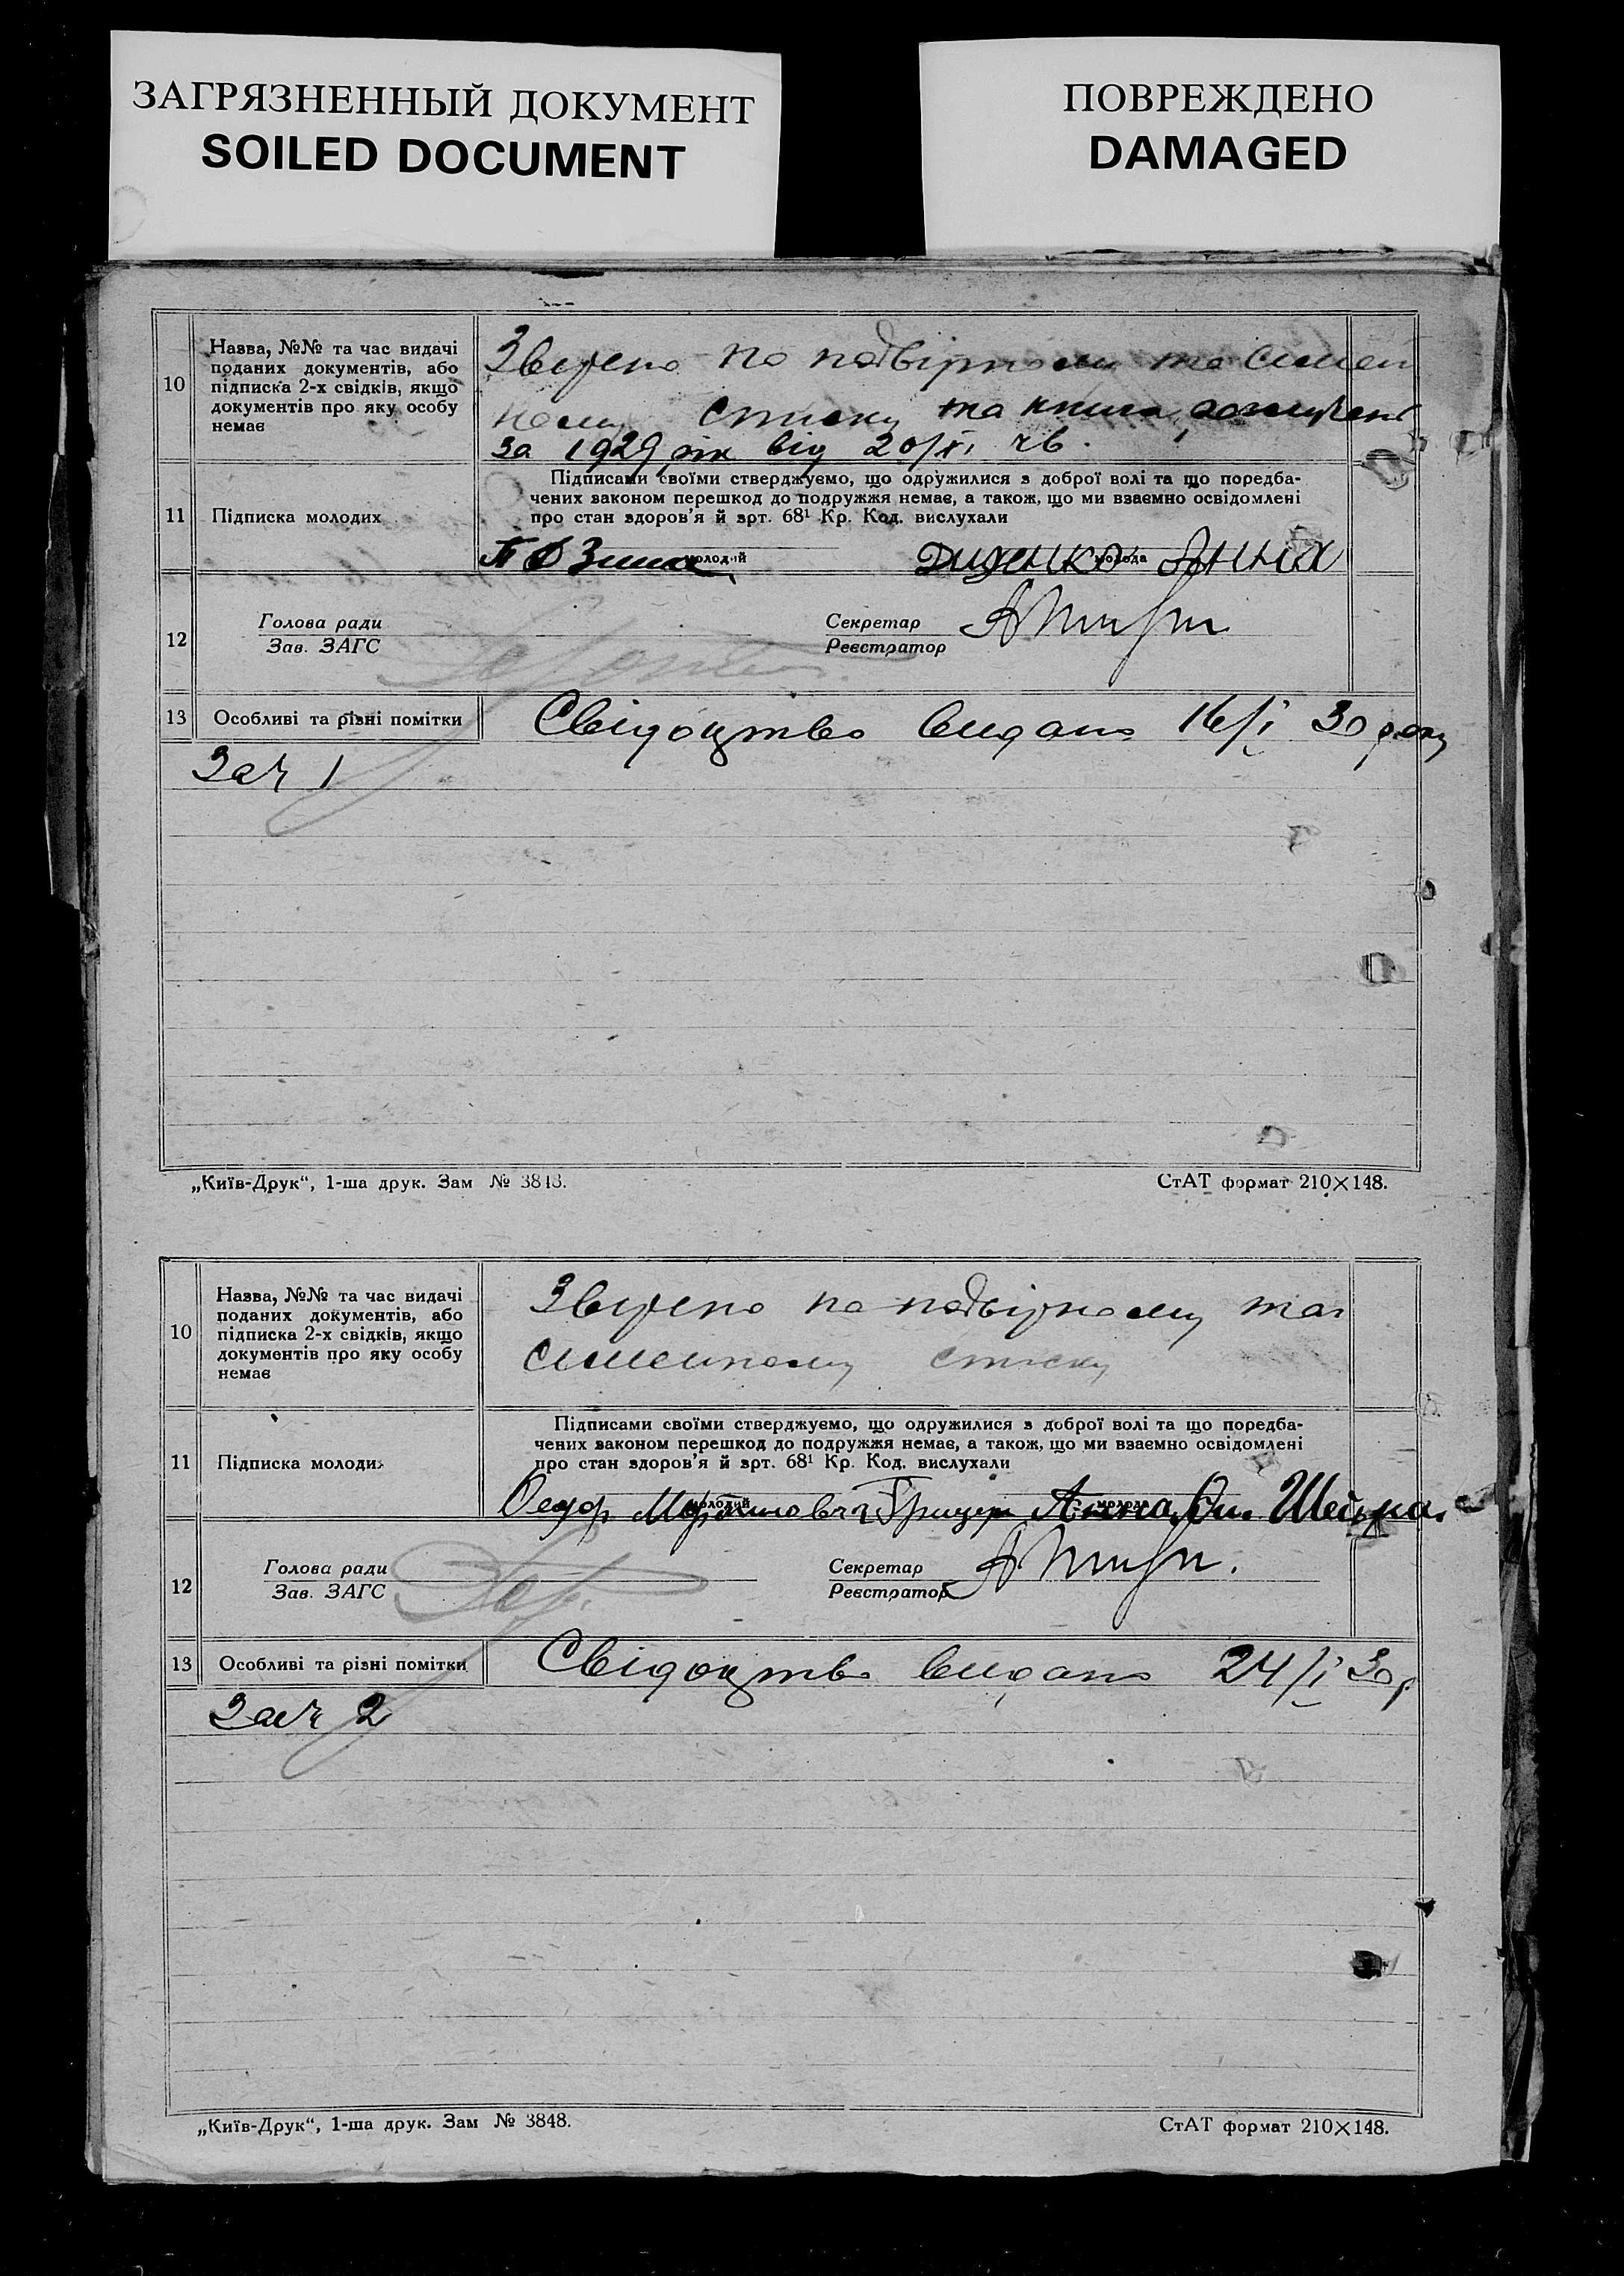 ЗАГРЯЗНЕННЫЙ ДОКУМЕНТ
SOILED DOCUMENT
ПОВРЕЖДЕНО
DAMAGED
10
Назва, №№ та час видачі
поданих документів, або
підписка 2-х свідків, якщо
документів про яку особу
немає
Звірено по подвірному та симей
ному списку та книга
за 1929 рік від 20/XI
11
Підписка молодих
Підписами своїми стверджуємо, що одружилися з доброї волі та що передба-
чених законом перешкод до подружжя немає, а також, що ми взаємно освідомлені
про стан здоров'я й арт. 68¹ Кр. Код. вислухали
молодий
молода
Диденко Анна
12
Голова ради
Зав. ЗАГС
Секретар
Реєстратор
13
Особливі та різні помітки
Свідоцтво видано 16/I 30 року
Зач 1
„Київ-Друк“, 1-ша друк. Зам № 3848.
СтАТ формат 210×148.
10
Назва, №№ та час видачі
поданих документів, або
підписка 2-х свідків, якщо
документів про яку особу
немає
Звірено по подвірному та
симейному списку
11
Підписка молодих
Підписами своїми стверджуємо, що одружилися з доброї волі та що поредба-
чених законом перешкод до подружжя немає, а також, що ми взаємно освідомлені
про стан здоров'я й арт. 68¹ Кр. Код. вислухали
молодий
молода
Анна
12
Голова ради
Зав. ЗАГС
Секретар
Реєстратор
13
Особливі та різні помітки
Свідоцтво видано 24/I 30 р
Зач 2
„Київ-Друк“, 1-ша друк. Зам № 3848.
СтАТ формат 210×148.